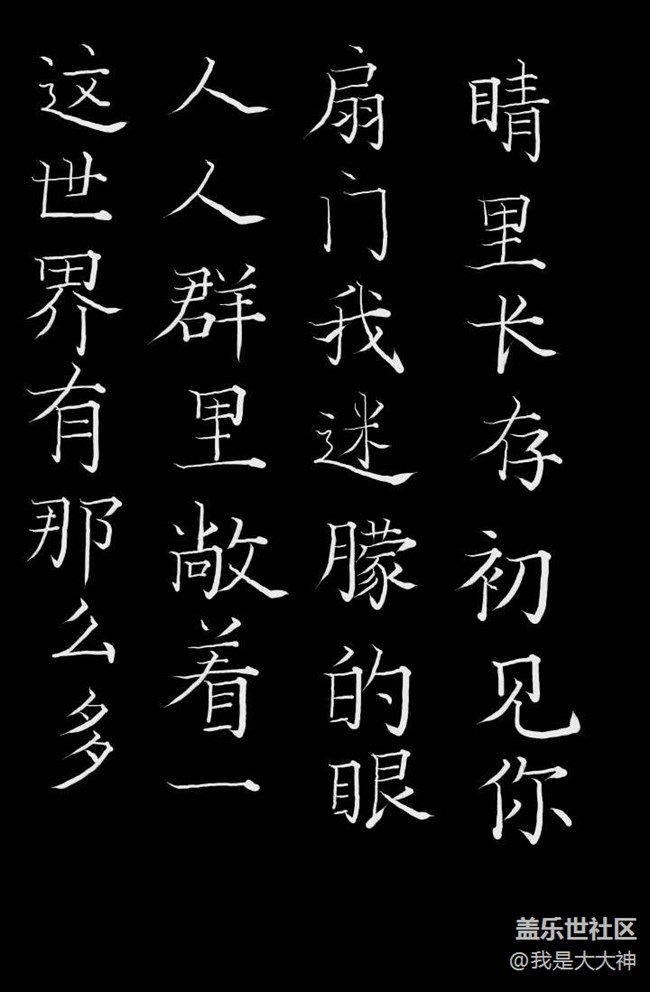 这世界有那么多
人人群里敞着一
扇门我迷朦的眼
睛里长存初见你
盖乐世社区
@我是大大神